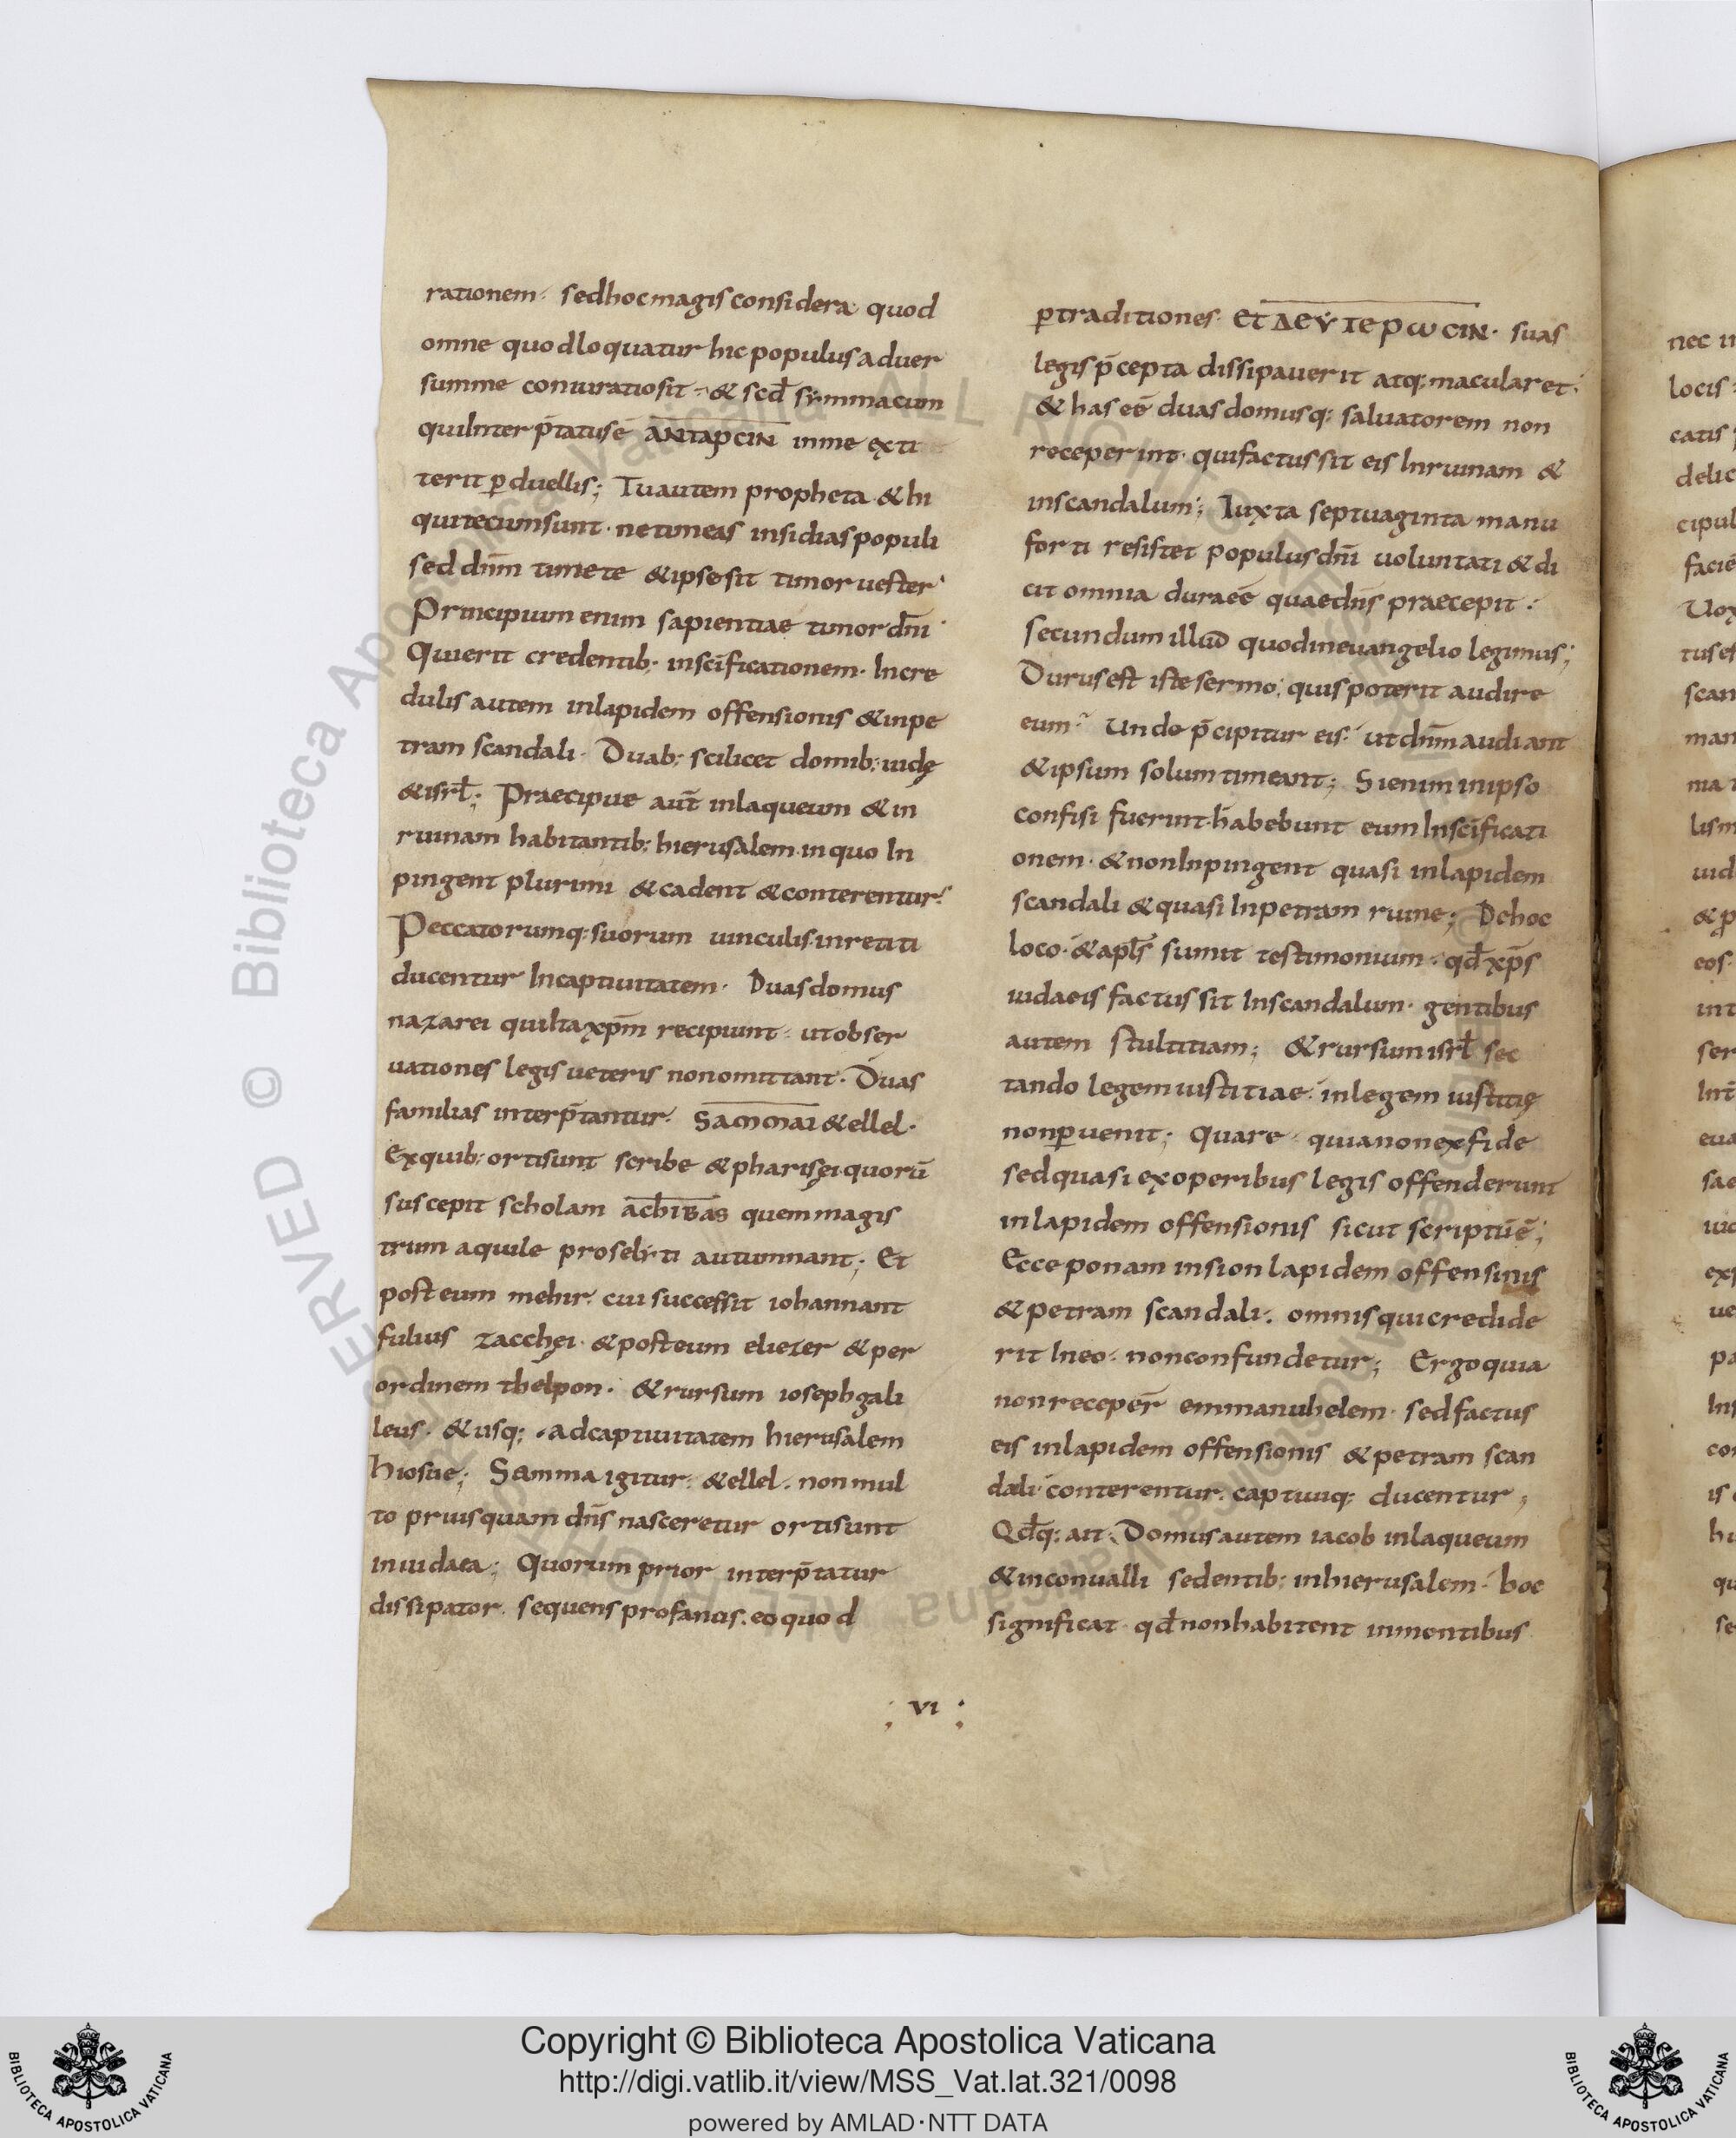 rationem· sed hoc magis considera quod
omne quod loquatur hic populus aduer
summe coniuratio sit· & scd̄ symmacum
qui Inter p̄tatus ē ANTAPCIN in me exti
terit ꝑduellis; Tu autem propheta & hi
qui tecum sunt· ne timeas insidias populi
sed dn̄m timete & ipse sit timor uester·
Principium enim sapientiae timor dn̄i·
Qui erit credentib; in scīficationem· Incre
dulis autem in lapidem offensionis & in pe
tram scandali· Duab; scilicet domib; iudę
& isrl̄; Praecipue aut̄ in laqueum & in
ruinam habitantib; hierusalem in quo In
pingent plurimi & cadent & conterentur·
Peccatorumq; suorum uinculis inretiti
ducentur In captiuitatem· Duas domus
nazarei qui Ita xp̄m recipiunt· ut obser
uationes legis ueteris non omittant· Duas
familias interp̄tantur· Sammai & ellel·
Ex quib; orti sunt scribe & pharisęi quorū
suscepit scholam achibas quem magis
trum aquile proselyti autumnant; Et
post eum mehir· cui successit iohannant
fulius zacchęi· & post eum eliezer & per
ordinem thelpon· & rursum ioseph gali
leus· & usq; ad captiuitatem hierusalem
hiosue; Samma igitur· & ellel· non mul
to prius quam dn̄s nasceretur orti sunt
in iudaea; Quorum prior interp̄tatur
dissipator· sequens profanus· eo quod
ꝑ traditiones· et ΔΕΥΤΕΡωCIN· suas
legis p̄cepta dissipauerit atq; macularet·
& has eē duas domus q; saluatorem non
receperint· qui factus sit eis In ruinam &
in scandalum; Iuxta septuaginta manu
forti resistet populus dn̄i uoluntati & di
cit omnia dura eē quae dn̄s praecepit·
secundum illud quod in euangelio legimus;
Durus est iste sermo; quis poterit audire
eum? Unde p̄cipitur eis· ut dn̄m audiant
& ipsum solum timeant; Si enim in ipso
confisi fuerint· habebunt eum In scīficati
onem· & non Inpingent quasi in lapidem
scandali & quasi In petram ruine; De hoc
loco· & apl̄s sumit testimonium· qd̄ xp̄s
iudaeis factus sit In scandalum· gentibus
autem stultitiam; & rursum isrl̄ sec
tando legem iustitiae· in legem iustitię
non ꝑuenit; Quare· quia non ex fide
sed quasi ex operibus legis offenderunt
in lapidem offensionis sicut scriptū ē;
Ecce ponam in sion lapidem offensinis
& petram scandali· omnis qui credide
rit In eo· non confundetur; Ergo quia
non recepēr emmanuhelem· sed factus
eis in lapidem offensionis & petram scan
dali· conterentur· captiuiq; ducentur;
Qd̄q; ait· Domus autem iacob in laqueum
& in conualli sedentib; in hierusalem· hoc
significat· qd̄ non habitent in montibus
; VI ;
nec
locis
catis
delic
cipul
Uox
tus es
scan
man
lism
uid
eos
int
ser
eua
sae
exp
pa
Copyright © Biblioteca Apostolica Vaticana
http://digi.vatlib.it/view/MSS_Vat.lat.321/0098
powered by AMLAD·NTT DATA
BIBLIOTECA APOSTOLICA VATICANA
BIBLIOTECA APOSTOLICA VATICANA